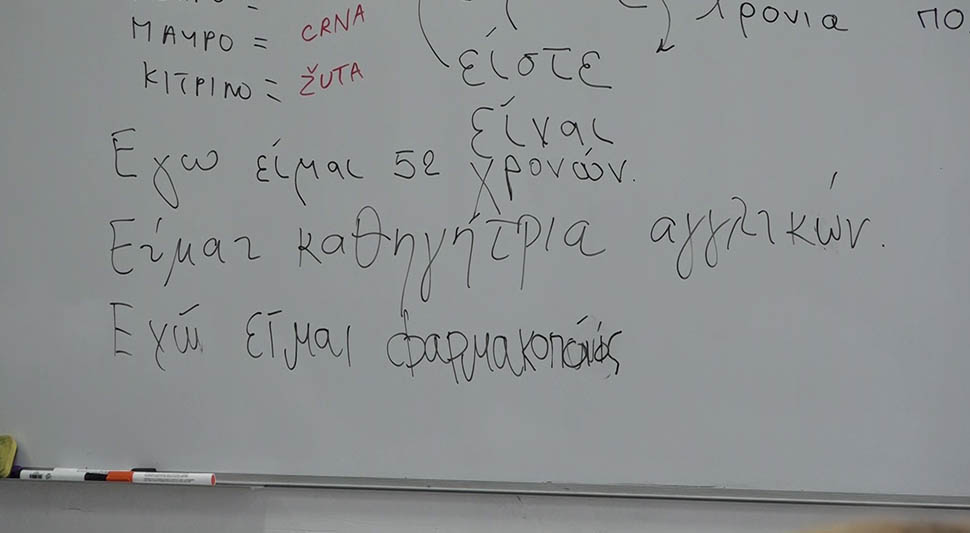 ΜΑΥΡΟ = CRNA
ΚΙΤΡΙΝΟ = ŽUTA
χρονια πο
είστε
είναι
Εγω είμαι 52 χρονών.
Είμαι καθηγήτρια αγγλικών.
Εχώ είμαι